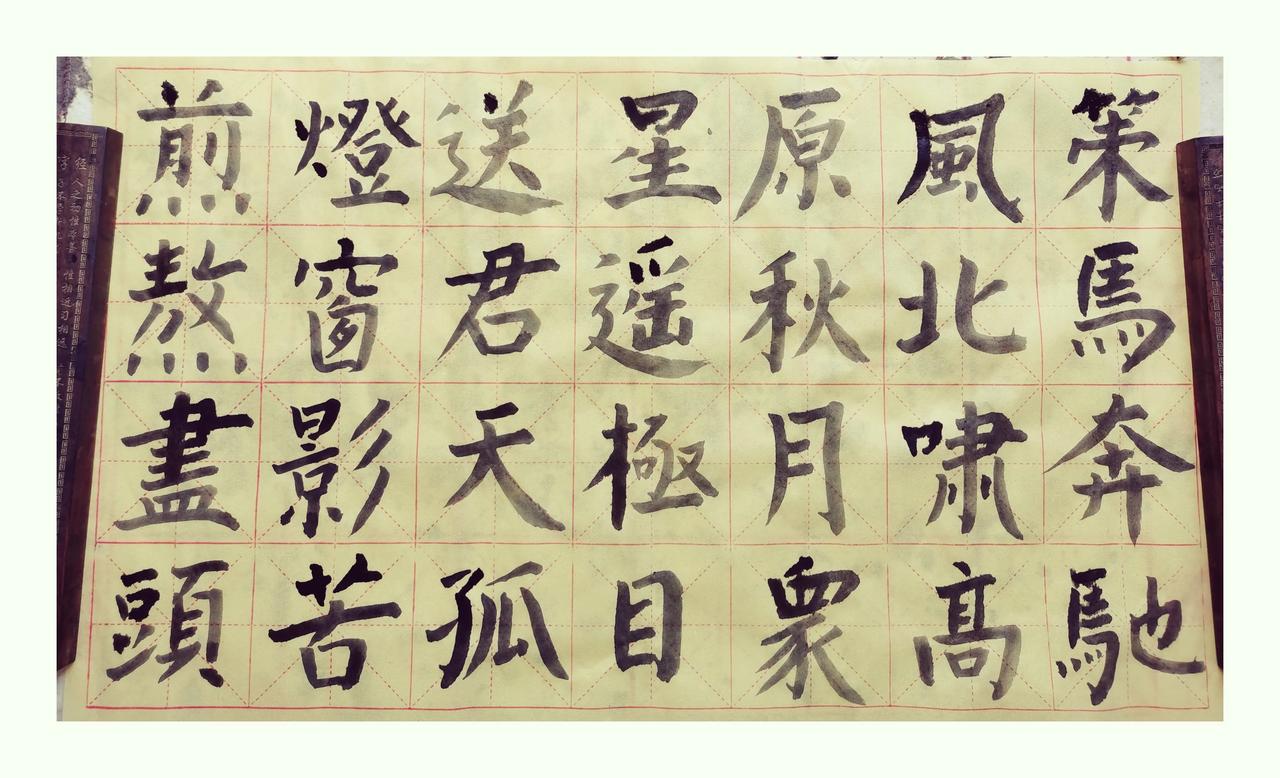 策馬奔馳
風北嘯高
原秋月衆
星遥極目
送君天孤
燈窗影苦
煎熬盡頭